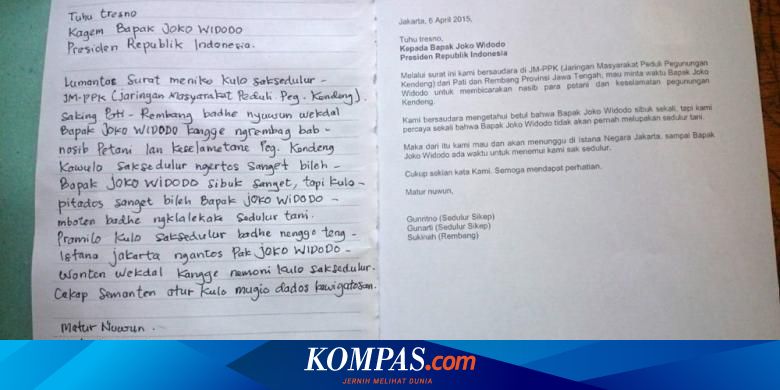 Tuhu tresno
Kagem Bapak JOKO WIDODO
Presiden Republik Indonesia.
Lumantas Surat meniko kulo saksedulur -
JM-PPK (Jaringan Masyarakat Peduli Peg. Kendeng).
Saking Pati - Rembang badhe nyuwun wekdal
Bapak JOKO WIDODO kangge ngrembag bab -
nosib Petani lan keselametane Peg. Kendeng
Kawulo saksedulur ngertos sanget bileh -
Bapak JOKO WIDODO sibuk sanget, tapi kulo -
pitados sanget bileh Bapak JOKO WIDODO -
mboten badhe ngklalekake sedulur tani.
Pramilo kulo saksedulur badhe nenggo teng -
Istana jakarta ngantos Pak JOKO WIDODO -
Wonten wekdal kangge nemoni kulo saksedulur.
Cekap Semanten atur kulo mugio dados kawigatosan.
Matur Nuwun .
Jakarta, 6 April 2015,
Tuhu tresno,
Kepada Bapak Joko Widodo
Presiden Republik Indonesia
Melalui surat ini kami bersaudara di JM-PPK (Jaringan Masyarakat Peduli Pegunungan
Kendeng) dari Pati dan Rembang Provinsi Jawa Tengah, mau minta waktu Bapak Joko
Widodo untuk membicarakan nasib para petani dan keselamatan pegunungan
Kendeng.
Kami bersaudara mengetahui betul bahwa Bapak Joko Widodo sibuk sekali, tapi kami
percaya sekali bahwa Bapak Joko Widodo tidak akan pernah melupakan sedulur tani.
Maka dari itu kami mau dan akan menunggu di istana Negara Jakarta, sampai Bapak
Joko Widodo ada waktu untuk menemui kami sak sedulur.
Cukup sekian kata Kami. Semoga mendapat perhatian.
Matur nuwun,
Gunritno (Sedulur Sikep)
Gunarti (Sedulur Sikep)
Sukinah (Rembang)
KOMPAS.com
JERNIH MELIHAT DUNIA